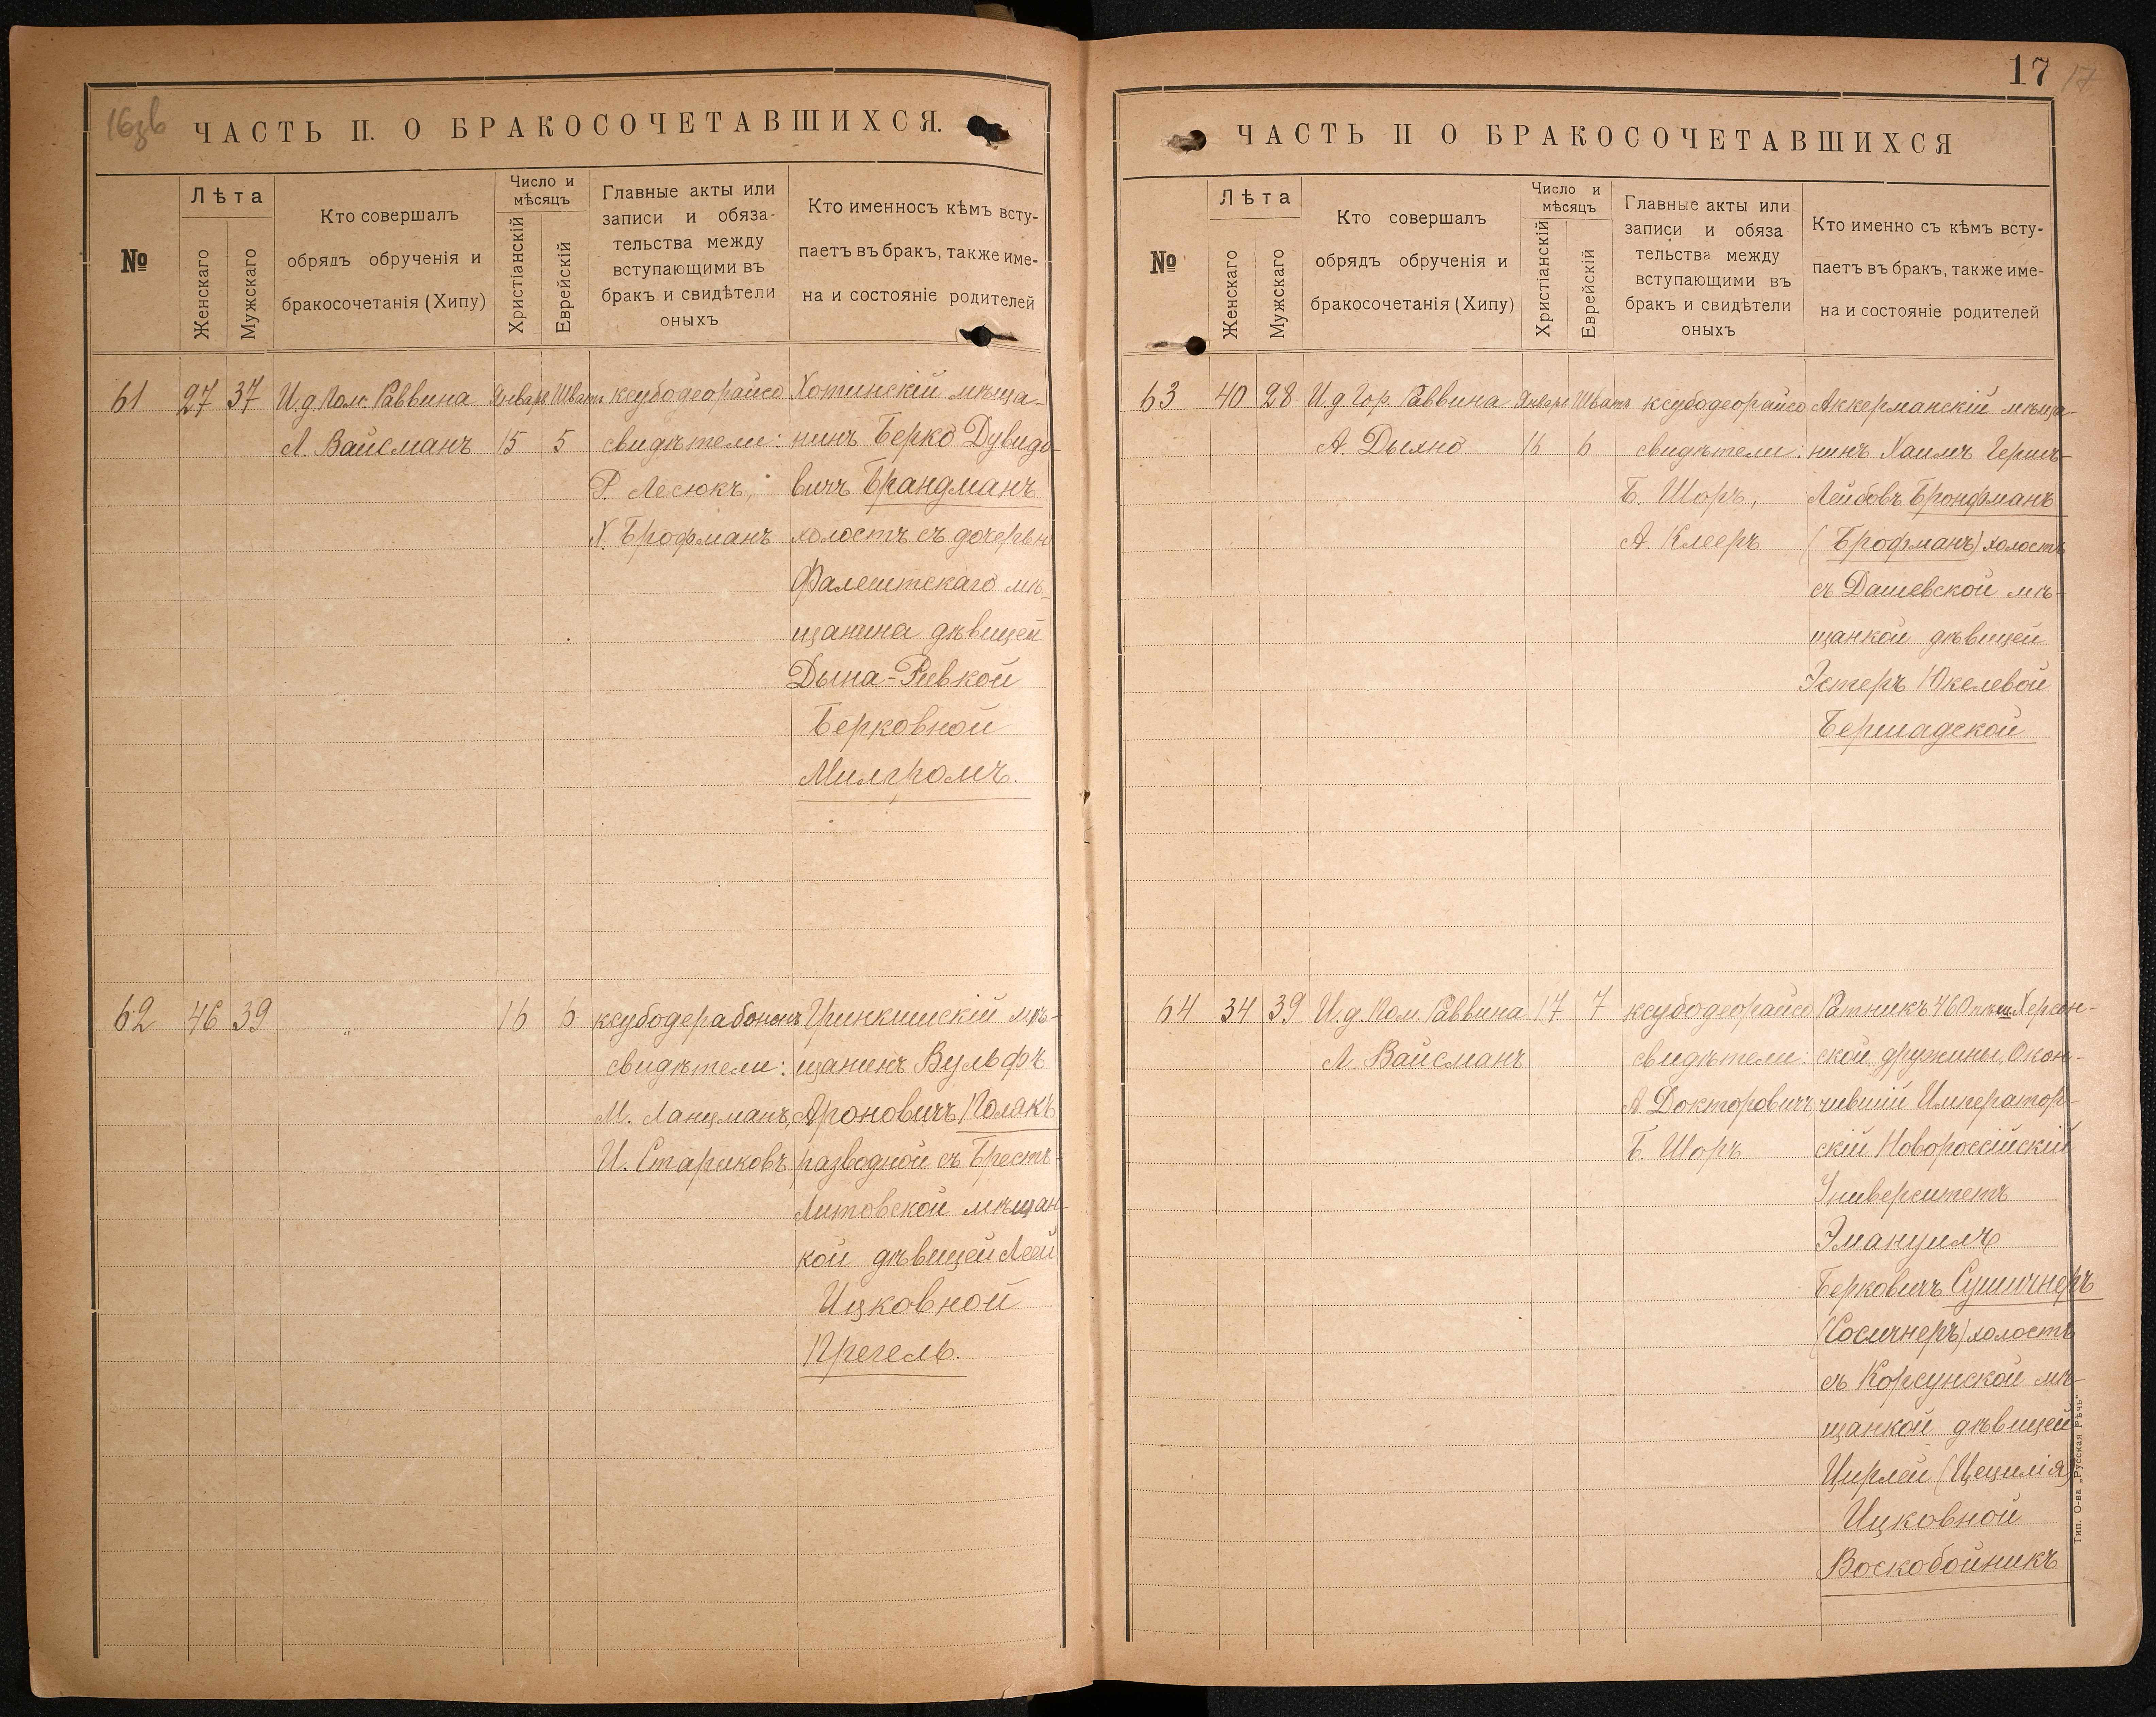 16зв
ЧАСТЬ II. О БРАКОСОЧЕТАВШИХСЯ.
№
Лѣта
Женскаго
Мужскаго
Кто совершалъ
обрядъ обрученія и
бракосочетанія (Хипу)
Число и
мѣсяцъ
Христіанскій
Еврейскій
Главные акты или
записи и обяза-
тельства между
вступающими въ
бракъ и свидѣтели
оныхъ
Кто именносъ кѣмъ всту-
паетъ въ бракъ, также име-
на и состояніе родителей
61
27
37
И.д. Пом. Раввина
Л. Вайсманъ
Январь
15
Шватъ
5
ксубодеорайсо
свидѣтели:
Р. Лесюкъ,
Х. Брофманъ
Хотинскій мѣща-
нинъ Берко Дувидо-
вичъ Брандманъ
холостъ съ дочерью
Фалештскаго мѣ-
щанина дѣвицей
Дына-Ривкой
Берковной
Милгромъ.
62
46
39
"
16
6
ксубодерабононъ
свидѣтели:
М. Ланцманъ,
И. Стариковъ
Гринкишскій мѣ-
щанинъ Вульфъ
Ароновичъ Полакъ
разводной съ Брестъ-
Литовской мѣщан-
кой дѣвицей Леей
Ицковной
Прегель.
17
17
ЧАСТЬ II О БРАКОСОЧЕТАВШИХСЯ
№
Лѣта
Женскаго
Мужскаго
Кто совершалъ
обрядъ обрученія и
бракосочетанія (Хипу)
Число и
мѣсяцъ
Христіанскій
Еврейскій
Главные акты или
записи и обяза
тельства между
вступающими въ
бракъ и свидѣтели
оныхъ
Кто именно съ кѣмъ всту-
паетъ въ бракъ, также име-
на и состояніе родителей
63
40
28
И.д. Гор. Раввина
А. Дыхно
Январь
16
Шватъ
6
ксубодеорайсо
свидѣтели:
Б. Шоръ,
А. Клееръ
Аккерманскій мѣща-
нинъ Хаимъ Гершъ-
Лейбовъ Бронфманъ
(Брофманъ) холостъ
съ Дашевской мѣ-
щанкой дѣвицей
Эстеръ Юкелевой
Бершадской
64
34
39
И.д. Пом. Раввина
Л. Вайсманъ
17
7
ксубодеорайсо
свидѣтели:
А. Докторовичъ
Б. Шоръ
Ратникъ 460 пѣш. Херсон-
ской дружины, Окон-
чившій Император-
скій Новороссійскій
Университетъ
Эмануилъ
Берковичъ Сушичнеръ
(Сосичнеръ) холостъ
съ Корсунской мѣ-
щанкой дѣвицей
Цирлей (Цецилія)
Ицковной
Воскобойникъ
Тип. О-ва „Русская Рѣчь"